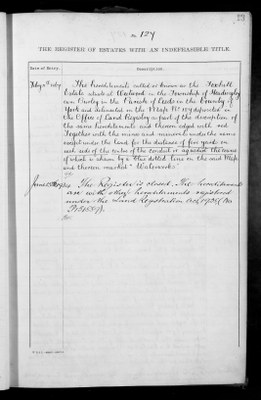 23
No. 127
THE REGISTER OF ESTATES WITH AN INDEFEASIBLE TITLE.
Date of Entry.
Description.
The hereditaments called or known as the Foxhill
Estate situate at Weetwood in the Township of Headingley
cum Burley in the Parish of Leeds in the County of
York and delineated in the Map No. 127 deposited in
the Office of Land Registry as part of the description of
the same hereditaments and thereon edged with red
Together with the mines and minerals under the same
except under the land for the distance of five yards on
each side of the centre of the conduit or aqueduct the course
of which is shown by a blue dotted line on the said Map
and thereon marked "Waterworks".
The Register is closed. The hereditaments
are with other hereditaments registered
under the Land Registration Act, 1925 (No